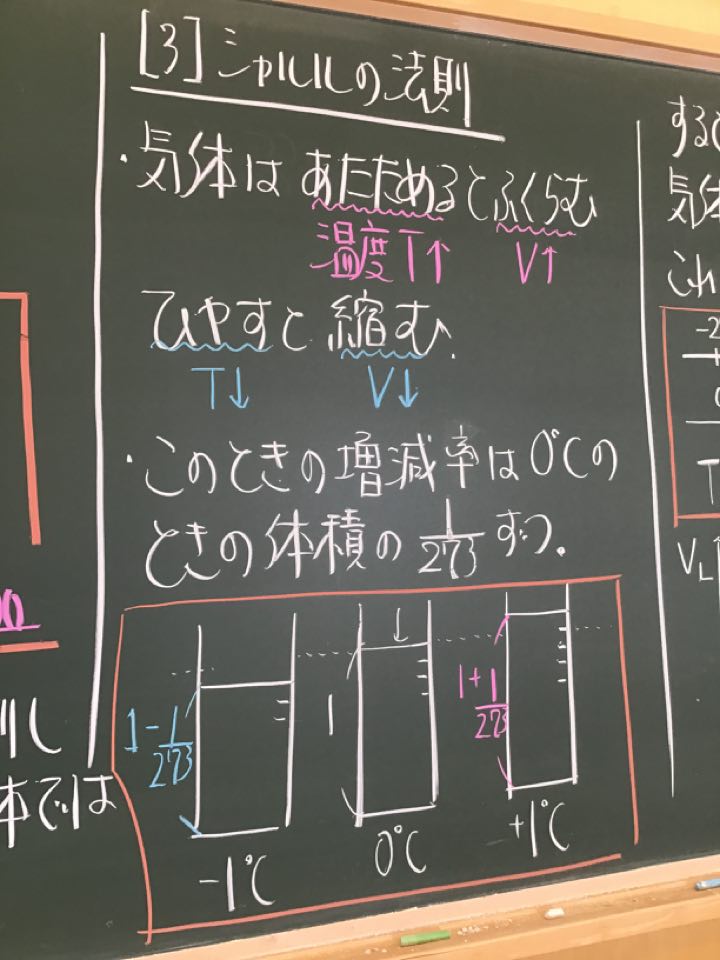 [3] シャルルの法則
・気体は あたためると ふくらむ
温度T↑ V↑
ひやすと 縮む.
T↓ V↓
・このときの増減率は0℃の
ときの体積の 1/273 ずつ.
1-1/273
1
1+1/273
-1℃
0℃
+1℃
体では
する
気体
これ
T
V_L